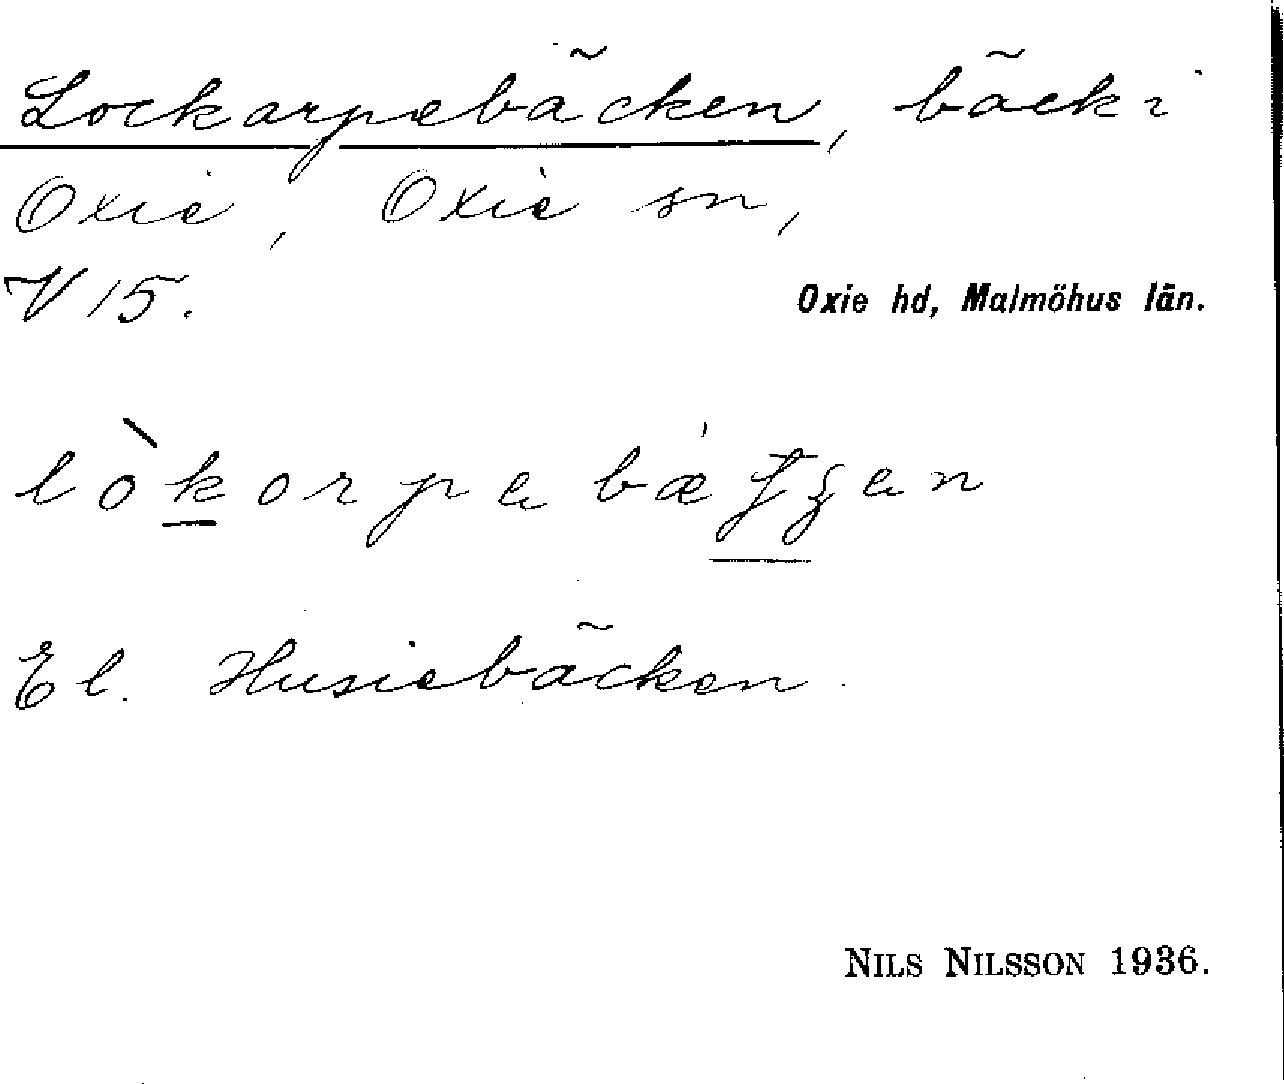 Lockarpebäcken, bäck i
Oxie, Oxie sn,
V 15.
Oxie hd, Malmöhus län.
El. Husiebäcken.
NILS NILSSON 1936.